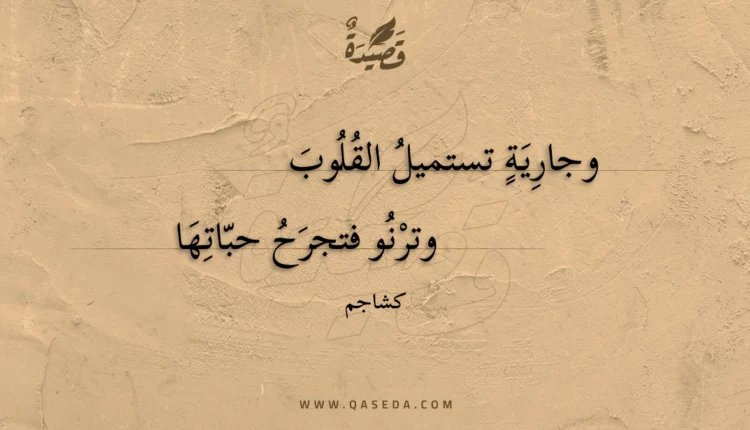 قَصِيدَةٌ
وجارِيَةٍ تستميلُ القُلُوبَ
وترْنُو فتجرَحُ حبّاتِهَا
كشاجم
WWW.QASEDA.COM